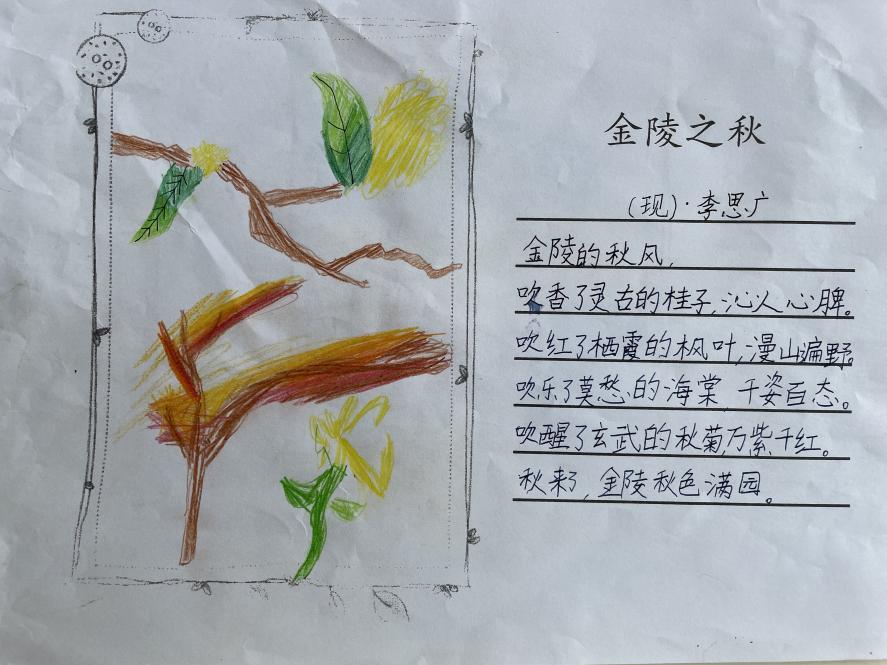 金陵之秋
(现)·李思广
金陵的秋风,
吹香了灵古的桂子,沁人心脾。
吹红了栖霞的枫叶,漫山遍野。
吹乐了莫愁的海棠 千姿百态。
吹醒了玄武的秋菊,万紫千红。
秋来了,金陵秋色满园。